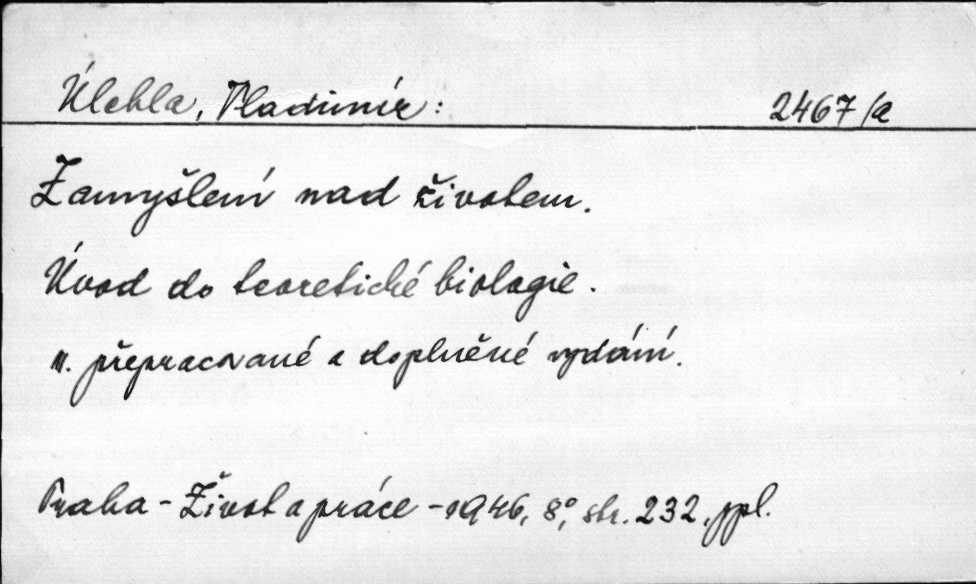 Úlehla, Vladimír: 2467/a
Zamyšlení nad životem.
Úvod do teoretické biologie.
II. přepracované a doplněné vydání.
Praha - Život a práce - 1946, 8°, str. 232, ppl.